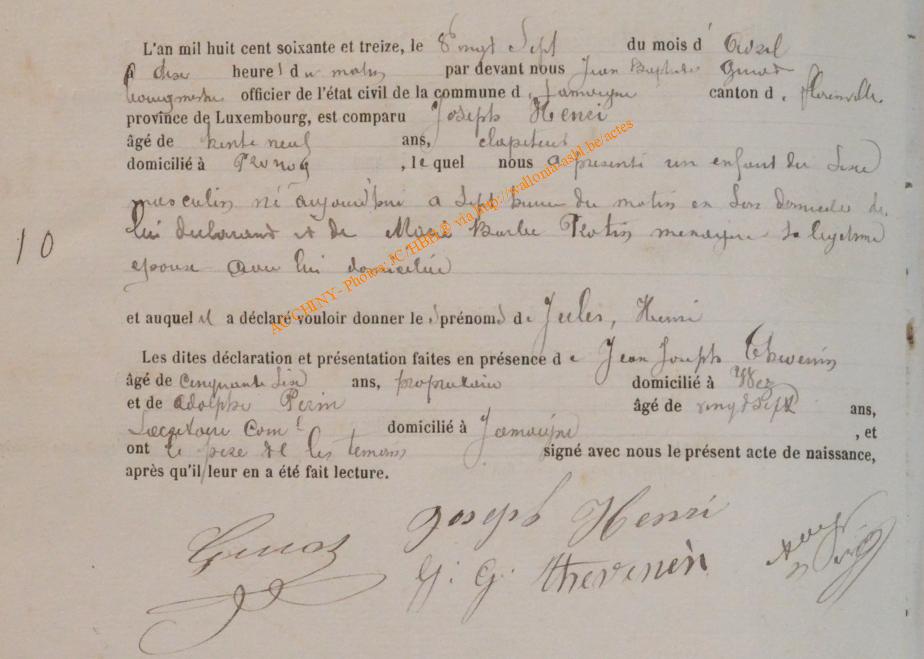 L'an mil huit cent soixante et treize, le vingt Sept du mois d' Avril
à dix heures du matin par devant nous Jean Baptiste
bourgmestre officier de l'état civil de la commune d, Jamoigne canton d, florenville
province de Luxembourg, est comparu Joseph Henri
âgé de trente neuf ans,
domicilié à Prouvy, lequel nous a présenté un enfant du Sexe
masculin né aujourd'hui a Sept heures du matin en son domicile de
lui déclarant et de Marie Barbe Protin menagère Sa legitime
epouse avec lui domiciliée
10
et auquel il a déclaré vouloir donner les prénoms de Jules, Henri
Les dites déclaration et présentation faites en présence de Jean Joseph Thevenin
âgé de Cinquante Six ans, propriétaire domicilié à
et de Adolphe Perin âgé de vingt Sept ans,
Secrétaire Coml domicilié à Jamoigne, et
ont le père et les temoins signé avec nous le présent acte de naissance,
après qu'il leur en a été fait lecture.
Joseph Henri
J. J. thevenin
AC CHINY - Photos: JC/HBH @ via http://wallonia.asbl.be/actes